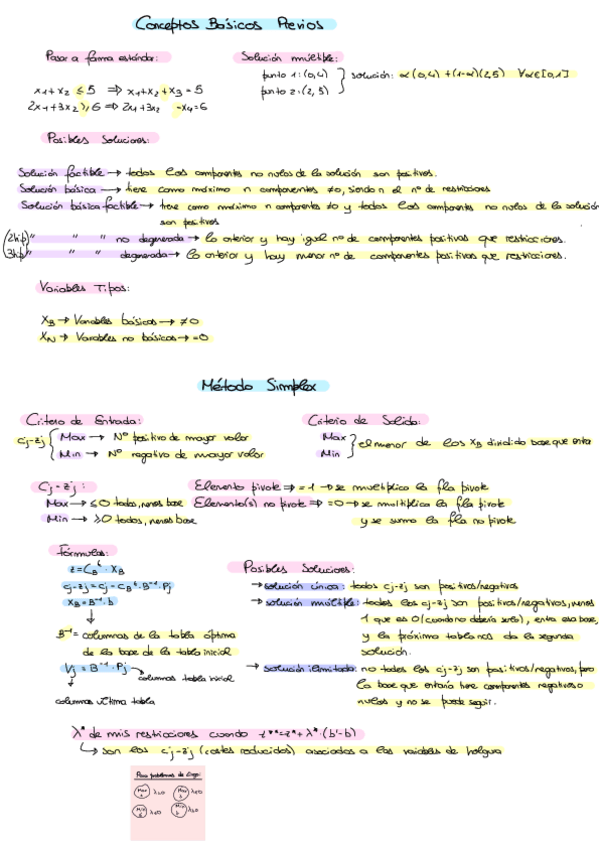 Conceptos Básicos Previos
Pasar a forma estándar:
Solución múltiple:
x1+x2 ≤ 5 ⇒ x1+x2+x3 = 5
2x1+3x2 ≥ 6 ⇒ 2x1+3x2 -x4=6
punto 1: (0,4)
punto 2: (2, 5)
solución: α(0,4) + (1-α)(2,5) ∀α∈[0,1]
Posibles Soluciones:
Solución factible → todas las componentes no nulas de la solución son positivas.
Solución básica → tiene como máximo n componentes ≠0, siendo n el nº de restricciones
Solución básica factible → tiene como máximo n componentes ≠0 y todas las componentes no nulas de la solución
son positivas
(2hip) " " " no degenerada → lo anterior y hay igual nº de componentes positivas que restricciones.
(3hip) " " " degenerada → lo anterior y hay menor nº de componentes positivas que restricciones.
Variables Tipos:
XB → Variables básicas → ≠0
XN → Variables no básicas → =0
Método Simplex
Criterio de Entrada:
cj-zj { Max → Nº positivo de mayor valor
Min → Nº negativo de mayor valor
Criterio de Salida:
Max
Min } el menor de los XB dividido base que entra
Cj-zj:
Max → ≤0 todos, menos base
Min → ≥0 todos, menos base
Elemento pivote ⇒ =1 → se multiplica la fila pivote
Elemento(s) no pivote ⇒ =0 → se multiplica la fila pivote
y se suma la fila no pivote
Fórmulas:
z = CBᵗ · XB
cj-zj = cj - CBᵗ · B⁻¹ · Pj
XB = B⁻¹ · b
B⁻¹ = columnas de la tabla óptima
de la base de la tabla inicial
Vj = B⁻¹ · Pj → columnas tabla inicial
columnas última tabla
Posibles Soluciones:
→ solución única: todos cj-zj son positivos/negativos
→ solución múltiple: todos los cj-zj son positivos/negativos, menos
1 que es 0 (cuando no debería serlo), entra esa base,
y la próxima tabla nos da la segunda
solución.
→ solución ilimitada: no todos los cj-zj son positivos/negativos, pero
la base que entraría tiene componentes negativas o
nulas y no se puede seguir.
λ* de mis restricciones cuando z** = z* + λ* · (b'-b)
→ son los cj-zj (costes reducidos) asociados a las variables de holgura
Para problemas de Lingo: